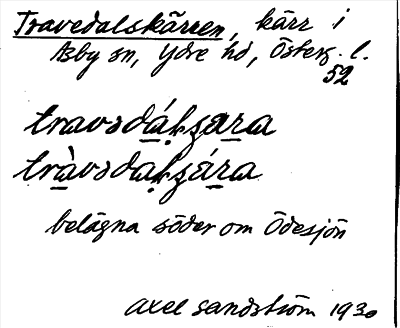 Travedalskärren, kärr i
Asby sn, Ydre hd, Österg. l.
52
travədá̱ḷʂa̱ra
trà̱vədaḷʂá̱ra
belägna söder om Ödesjön
Axel Sandström 1930